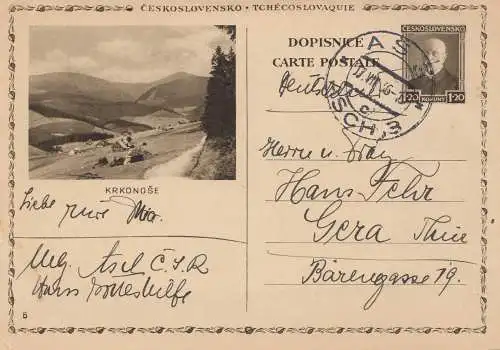 ČESKOSLOVENSKO · TCHÉCOSLOVAQUIE
DOPISNICE
CARTE POSTALE
ČESKOSLOVENSKO
1·20 KORUNY 1·20
AŠ
ASCH
Herrn u. Frau
Hans Fehr
Gera Thür
Bärengasse 19.
KRKONOŠE
Liebe
Asch Č.S.R
Hans
6